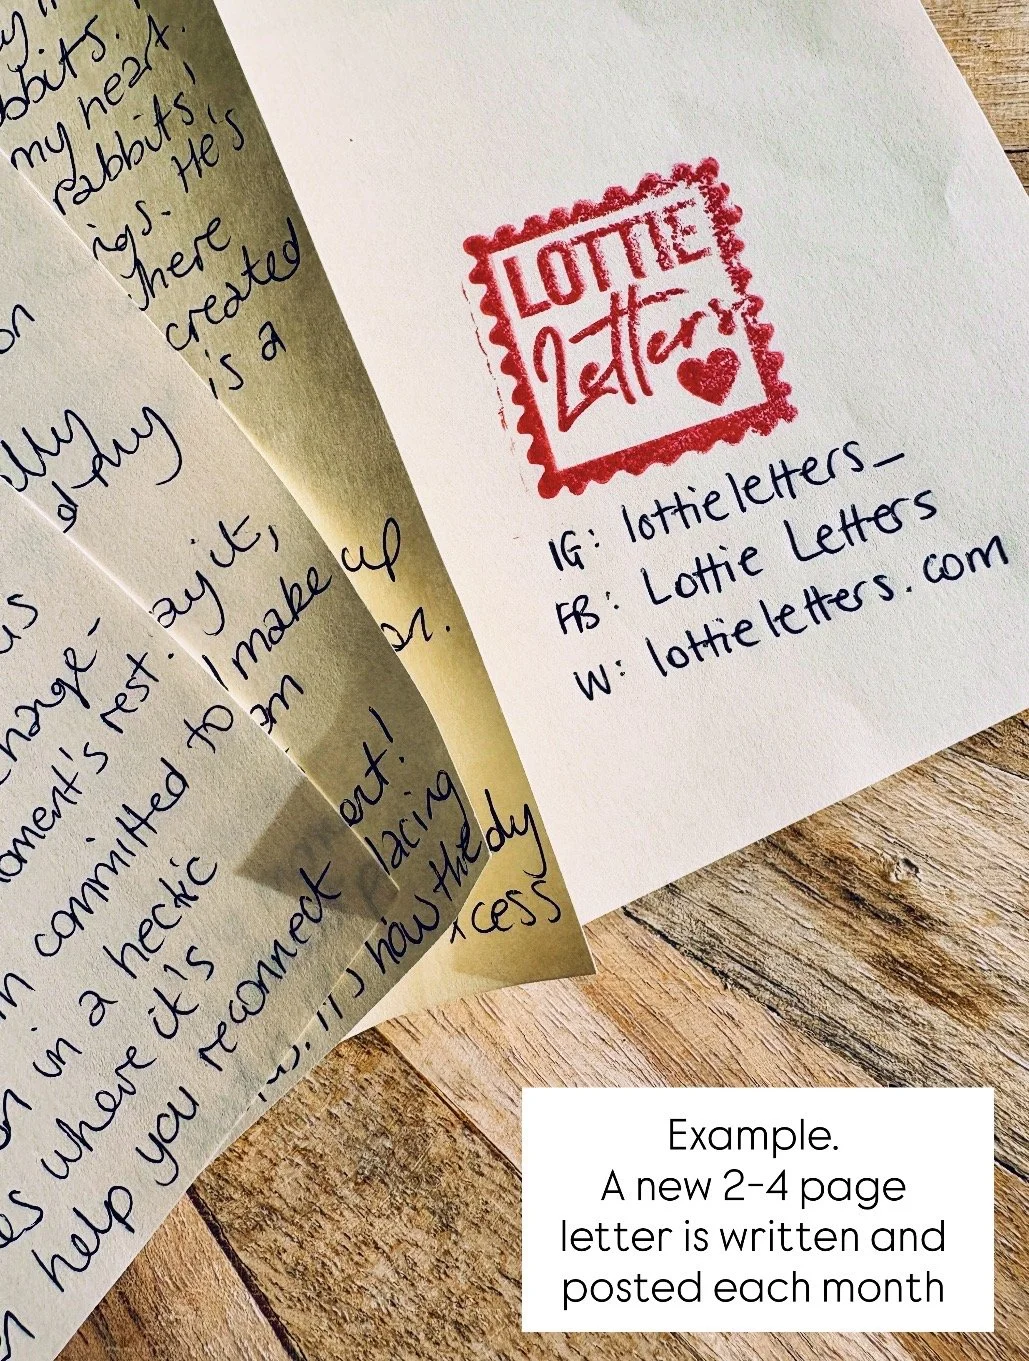 bbits.
my heart.
rabbits,
igs. He's
here
created
is a
on
lly
d thy
us
hange-
oment's rest.
ay it,
I make up
committed to
an
or.
in a hectic
where it's
help you reconnect
ort!
lacing
how the
dy
cess
LOTTIE
Letters
IG: lottieletters_
FB: Lottie Letters
W: lottieletters.com
Example.
A new 2-4 page
letter is written and
posted each month